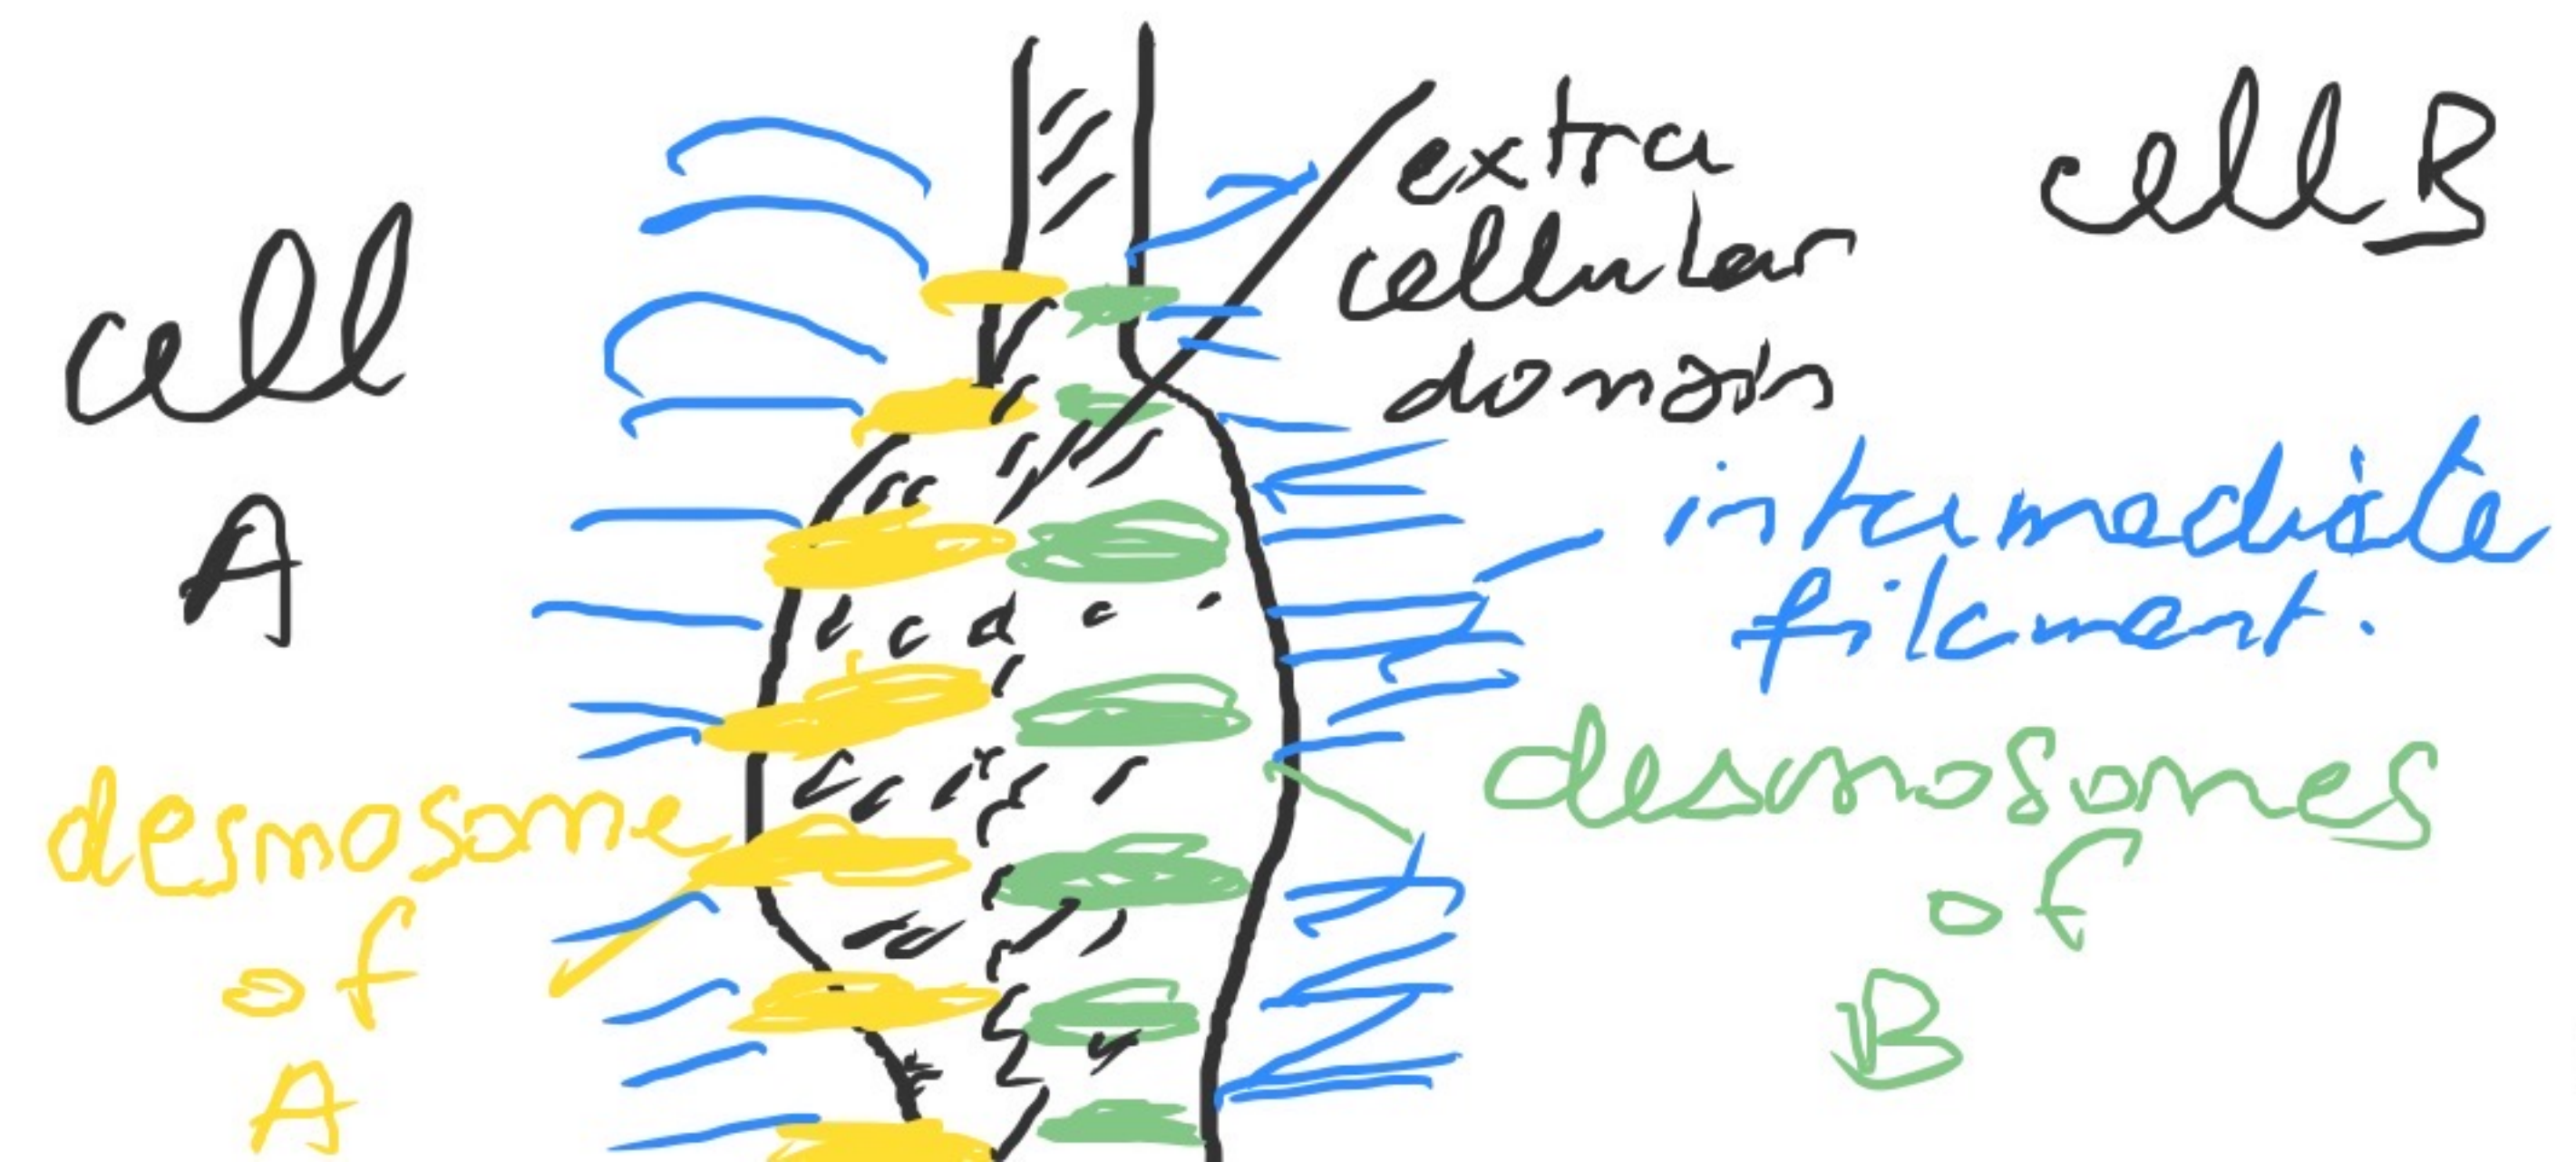 cell
A
extra
cellular
domain
cell B
intermediate
filament.
desmosome
of
A
desmosomes
of
B